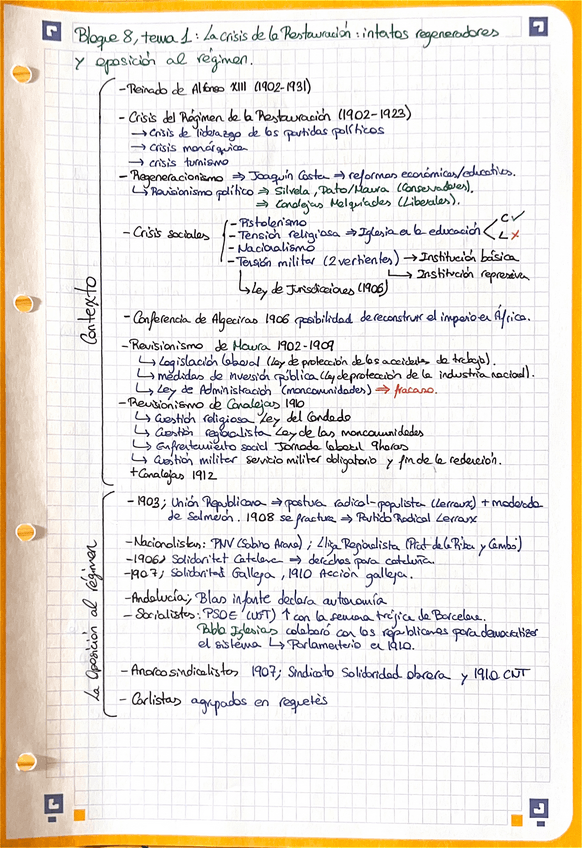 Bloque 8, tema 1: La crisis de la Restauración: intentos regeneradores
y oposición al régimen.
Contexto
- Reinado de Alfonso XIII (1902-1931)
- Crisis del Régimen de la Restauración (1902-1923)
→ crisis de liderazgo de los partidos políticos
→ crisis monárquica
→ crisis turnismo
- Regeneracionismo ⇒ Joaquín Costa ⇒ reformas económicas/educativas.
↳ Revisionismo político ⇒ Silvela, Dato/Maura (Conservadores).
⇒ Canalejas Melquiades (Liberales).
- Crisis sociales
- Pistolerismo
- Tensión religiosa ⇒ Iglesia en la educación < C ✓
L ✗
- Nacionalismo
- Tensión militar (2 vertientes) → Institución básica
↳ Institución represiva
↳ Ley de Jurisdicciones (1906)
- Conferencia de Algeciras 1906 posibilidad de reconstruir el imperio en África.
- Revisionismo de Maura 1902-1909
↳ Legislación laboral (Ley de protección de los accidentes de trabajo).
↳ medidas de inversión pública (Ley de protección de la industria nacional).
↳ Ley de Administración (mancomunidades) ⇒ fracaso.
- Revisionismo de Canalejas 1910
↳ Cuestión religiosa Ley del Candado
↳ Cuestión regionalista Ley de las mancomunidades
↳ Enfrentamiento social Jornada laboral 9horas
↳ Cuestión militar servicio militar obligatorio y fin de la redención.
+ Canalejas 1912
La Oposición al régimen
- 1903; Unión Republicana ⇒ postura radical-populista (Lerroux) + moderada
de Salmerón. 1908 se fractura ⇒ Partido Radical Lerroux
- Nacionalistas: PNV (Sabino Arana); Lliga Regionalista (Prat de la Riba y Cambó)
- 1906; Solidaritat Catalana ⇒ derechos para cataluña.
- 1907; Solidaritad Gallega, 1910 Acción gallega.
- Andalucía; Blas infante declara autonomía
- Socialistas: PSOE (UGT) ↑ con la semana trágica de Barcelona.
Pablo Iglesias colaboró con los republicanos para democratizar
el sistema ↳ Parlamentario en 1910.
- Anarcosindicalistas 1907; Sindicato Solidaridad obrera y 1910 CNT
- Carlistas agrupados en requetés